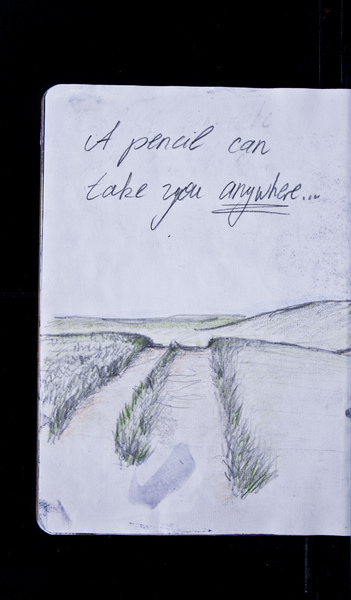 A pencil can
take you anywhere...